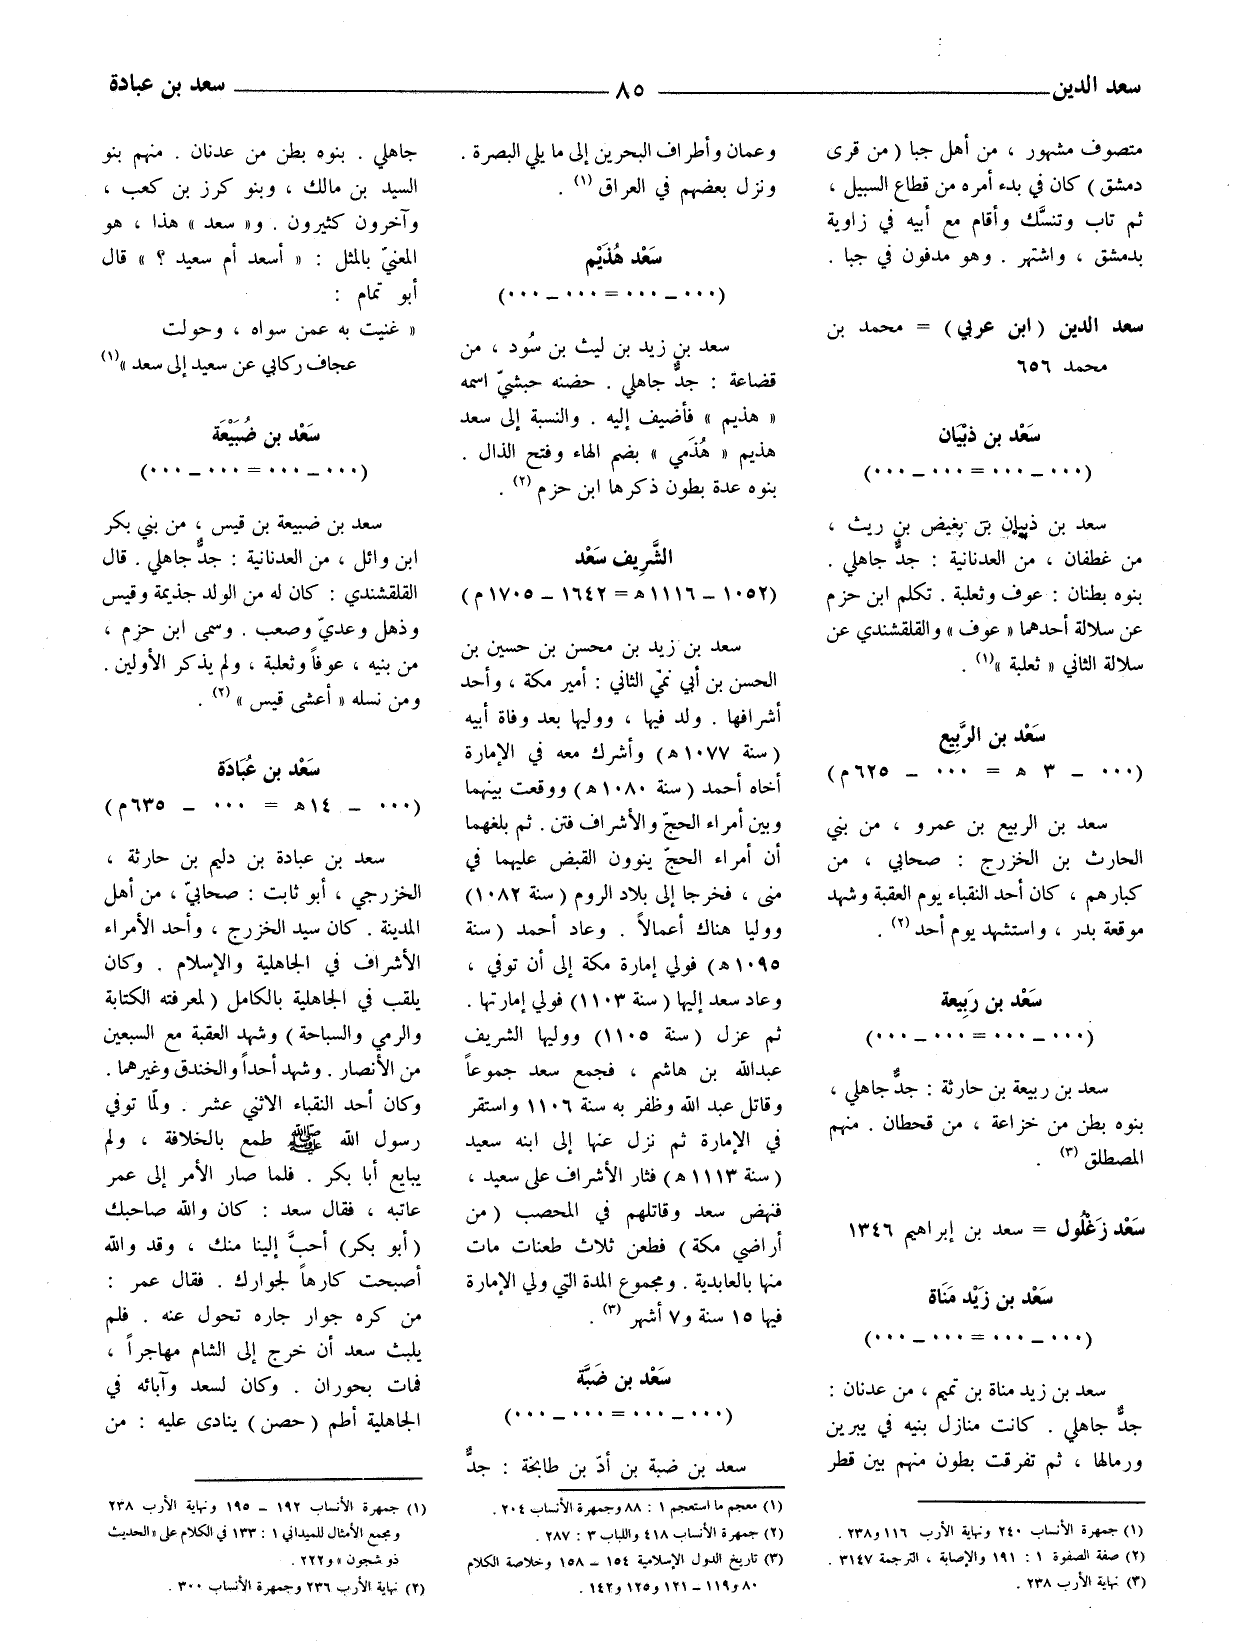 سعد الدين ٨٥ سعد بن عبادة
متصوف مشهور ، من أهل جبا ( من قرى
دمشق ) كان في بدء أمره من قطاع السبيل ،
ثم تاب وتنسَّك وأقام مع أبيه في زاوية
بدمشق ، واشتهر . وهو مدفون في جبا .
سعد الدين ( ابن عربي ) = محمد بن
محمد ٦٥٦
سَعْد بن ذبْيَان
(٠٠٠ ــ ٠٠٠ = ٠٠٠ ــ ٠٠٠)
سعد بن ذبيان بن بغيض بن ريث ،
من غطفان ، من العدنانية : جدٌّ جاهلي .
بنوه بطنان : عوف وثعلبة . تكلم ابن حزم
عن سلالة أحدهما « عوف » والقلقشندي عن
سلالة الثاني « ثعلبة »(١) .
سَعْد بن الرَّبِيع
(٠٠٠ ــ ٣ ه = ٠٠٠ ــ ٦٢٥م)
سعد بن الربيع بن عمرو ، من بني
الحارث بن الخزرج : صحابي ، من
كبارهم ، كان أحد النقباء يوم العقبة وشهد
موقعة بدر ، واستشهد يوم أحد (٢) .
سَعْد بن رَبِيعة
(٠٠٠ ــ ٠٠٠ = ٠٠٠ ــ ٠٠٠)
سعد بن ربيعة بن حارثة : جدٌّ جاهلي ،
بنوه بطن من خزاعة ، من قحطان . منهم
المصطلق (٣) .
سَعْد زَغْلُول = سعد بن إبراهيم ١٣٤٦
سَعْد بن زَيْد مَنَاة
(٠٠٠ ــ ٠٠٠ = ٠٠٠ ــ ٠٠٠)
سعد بن زيد مناة بن تميم ، من عدنان :
جدٌّ جاهلي . كانت منازل بنيه في يبرين
ورمالها ، ثم تفرقت بطون منهم بين قطر
(١) جمهرة الأنساب ٢٤٠ ونهاية الأرب ١١٦ و٢٣٨.
(٢) صفة الصفوة ١ : ١٩١ والإصابة ، الترجمة ٣١٤٧ .
(٣) نهاية الأرب ٢٣٨ .
وعمان وأطراف البحرين إلى ما يلي البصرة .
ونزل بعضهم في العراق (١) .
سَعْد هُذَيْم
(٠٠٠ ــ ٠٠٠ = ٠٠٠ ــ ٠٠٠)
سعد بن زيد بن ليث بن سُود ، من
قضاعة : جدٌّ جاهلي . حضنه حبشيّ اسمه
« هذيم » فأضيف إليه . والنسبة إلى سعد
هذيم « هُذَمي » بضم الهاء وفتح الذال .
بنوه عدة بطون ذكرها ابن حزم (٢) .
الشَّرِيف سَعْد
(١٠٥٢ ــ ١١١٦ه = ١٦٤٢ ــ ١٧٠٥م)
سعد بن زيد بن محسن بن حسين بن
الحسن بن أبي نمّي الثاني : أمير مكة ، وأحد
أشرافها . ولد فيها ، ووليها بعد وفاة أبيه
( سنة ١٠٧٧ ه ) وأشرك معه في الإمارة
أخاه أحمد ( سنة ١٠٨٠ ه ) ووقعت بينهما
وبين أمراء الحجّ والأشراف فتن . ثم بلغهما
أن أمراء الحجّ ينوون القبض عليهما في
منى ، فخرجا إلى بلاد الروم ( سنة ١٠٨٢ )
ووليا هناك أعمالاً . وعاد أحمد ( سنة
١٠٩٥ ه ) فولي إمارة مكة إلى أن توفي ،
وعاد سعد إليها ( سنة ١١٠٣ ) فولي إمارتها .
ثم عزل ( سنة ١١٠٥ ) ووليها الشريف
عبدالله بن هاشم ، فجمع سعد جموعاً
وقاتل عبد الله وظفر به سنة ١١٠٦ واستقر
في الإمارة ثم نزل عنها إلى ابنه سعيد
( سنة ١١١٣ ه ) فثار الأشراف على سعيد ،
فنهض سعد وقاتلهم في المحصب ( من
أراضي مكة ) فطعن ثلاث طعنات مات
منها بالعابدية . ومجموع المدة التي ولي الإمارة
فيها ١٥ سنة و٧ أشهر (٣) .
سَعْد بن ضَبَّة
(٠٠٠ ــ ٠٠٠ = ٠٠٠ ــ ٠٠٠)
سعد بن ضبة بن أدّ بن طابخة : جدٌّ
(١) معجم ما استعجم ١ : ٨٨ وجمهرة الأنساب ٢٠٤ .
(٢) جمهرة الأنساب ٤١٨ واللباب ٣ : ٢٨٧ .
(٣) تاريخ الدول الإسلامية ١٥٤ ــ ١٥٨ وخلاصة الكلام
٨٠ و١١٩ ــ ١٢١ و١٢٥ و١٤٢ .
جاهلي . بنوه بطن من عدنان . منهم بنو
السيد بن مالك ، وبنو كرز بن كعب ،
وآخرون كثيرون . و« سعد » هذا ، هو
المعنيّ بالمثل : « أسعد أم سعيد ؟ » قال
أبو تمام :
« غنيت به عمن سواه ، وحولت
عجاف ركابي عن سعيد إلى سعد »(١)
سَعْد بن ضُبَيْعَة
(٠٠٠ ــ ٠٠٠ = ٠٠٠ ــ ٠٠٠)
سعد بن ضبيعة بن قيس ، من بني بكر
ابن وائل ، من العدنانية : جدٌّ جاهلي . قال
القلقشندي : كان له من الولد جذيمة وقيس
وذهل وعديّ وصعب . وسمى ابن حزم ،
من بنيه ، عوفاً وثعلبة ، ولم يذكر الأولين .
ومن نسله « أعشى قيس » (٢) .
سَعْد بن عُبَادَة
(٠٠٠ ــ ١٤ه = ٠٠٠ ــ ٦٣٥م)
سعد بن عبادة بن دليم بن حارثة ،
الخزرجي ، أبو ثابت : صحابيّ ، من أهل
المدينة . كان سيد الخزرج ، وأحد الأمراء
الأشراف في الجاهلية والإسلام . وكان
يلقب في الجاهلية بالكامل ( لمعرفته الكتابة
والرمي والسباحة ) وشهد العقبة مع السبعين
من الأنصار . وشهد أحداً والخندق وغيرهما .
وكان أحد النقباء الاثني عشر . ولمّا توفي
رسول الله ﷺ طمع بالخلافة ، ولم
يبايع أبا بكر . فلما صار الأمر إلى عمر
عاتبه ، فقال سعد : كان والله صاحبك
( أبو بكر ) أحبَّ إلينا منك ، وقد والله
أصبحت كارهاً لجوارك . فقال عمر :
من كره جوار جاره تحول عنه . فلم
يلبث سعد أن خرج إلى الشام مهاجراً ،
فمات بحوران . وكان لسعد وآبائه في
الجاهلية أطم ( حصن ) ينادى عليه : من
(١) جمهرة الأنساب ١٩٢ ــ ١٩٥ ونهاية الأرب ٢٣٨
ومجمع الأمثال للميداني ١ : ١٣٣ في الكلام على «الحديث
ذو شجون » و٢٢٢ .
(٢) نهاية الأرب ٢٣٦ وجمهرة الأنساب ٣٠٠ .